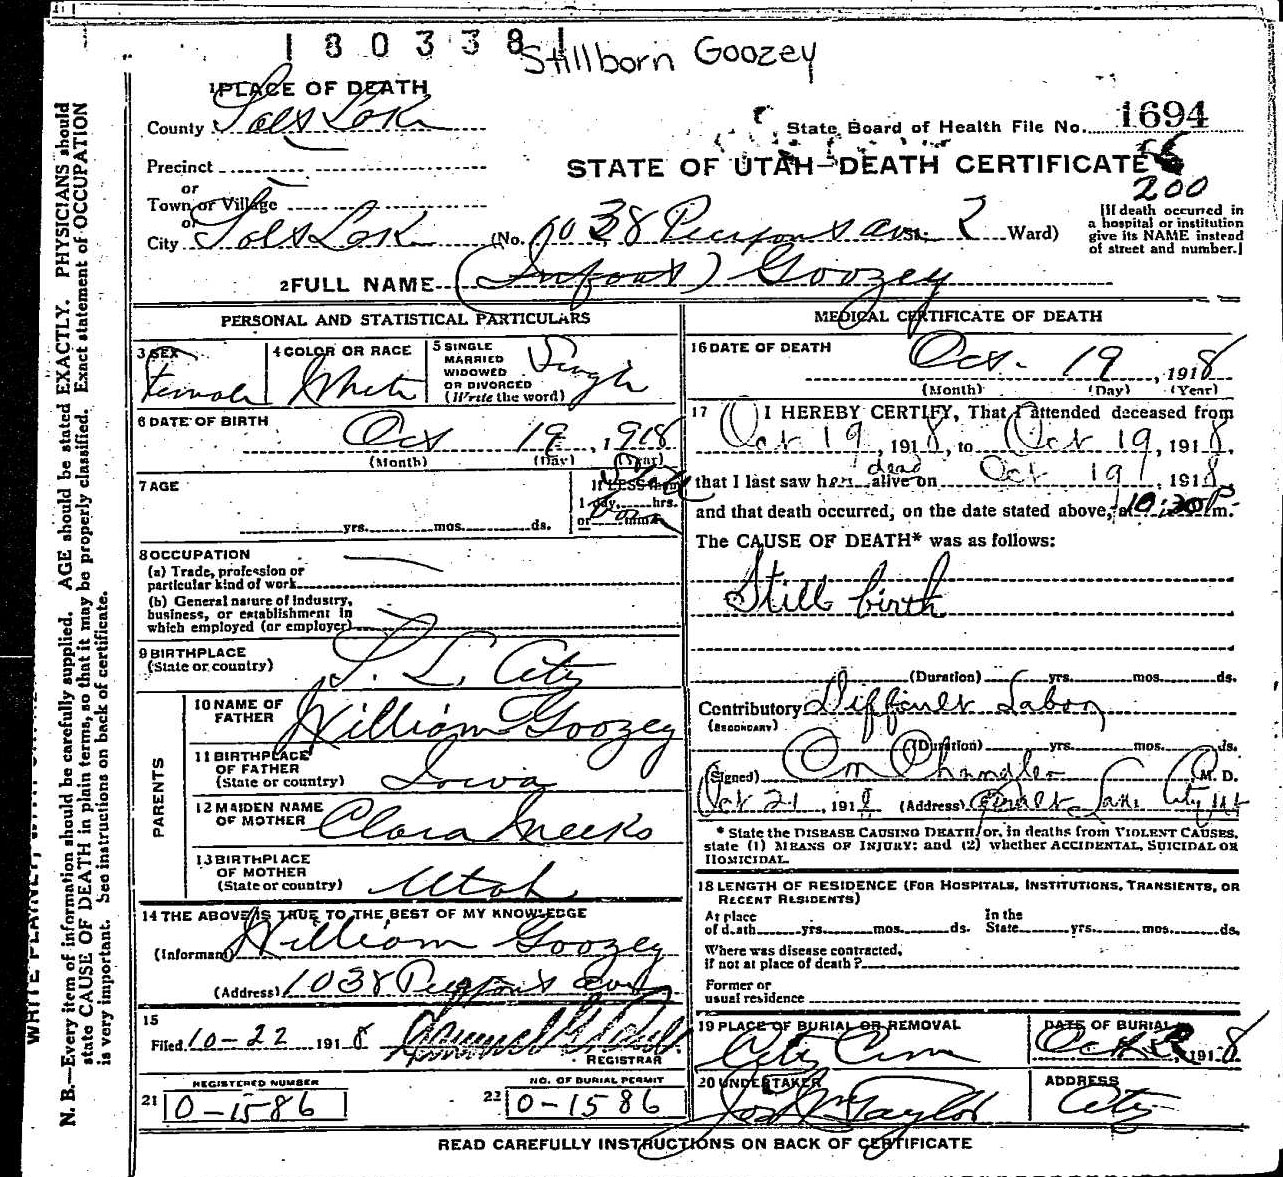 180338
Stillborn Goozey
1 PLACE OF DEATH
County Salt Lake
State Board of Health File No. 1694
Precinct
STATE OF UTAH—DEATH CERTIFICATE
200
or
Town or Village
or
City Salt Lake (No. 1038 Pierpont ave St. 2 Ward)
[If death occurred in
a hospital or institution
give its NAME instead
of street and number.]
2 FULL NAME (Infant) Goozey
PERSONAL AND STATISTICAL PARTICULARS
3 SEX Female
4 COLOR OR RACE White
5 SINGLE
MARRIED
WIDOWED
OR DIVORCED
(Write the word)
Single
6 DATE OF BIRTH
Oct 19, 1918
(Month) (Day) (Year)
7 AGE
yrs. mos. ds.
If LESS than
1 day, hrs.
or min.
Still born
8 OCCUPATION
(a) Trade, profession or
particular kind of work
(b) General nature of Industry,
business, or establishment in
which employed (or employer)
9 BIRTHPLACE
(State or country)
S. L. City
PARENTS
10 NAME OF
FATHER
William Goozey
11 BIRTHPLACE
OF FATHER
(State or country)
Iowa
12 MAIDEN NAME
OF MOTHER
Clara Meeks
13 BIRTHPLACE
OF MOTHER
(State or country)
Utah
14 THE ABOVE IS TRUE TO THE BEST OF MY KNOWLEDGE
(Informant) William Goozey
(Address) 1038 Pierpont ave
15
Filed 10-22 1918
REGISTRAR
REGISTERED NUMBER
21 0-1586
NO. OF BURIAL PERMIT
22 0-1586
MEDICAL CERTIFICATE OF DEATH
16 DATE OF DEATH
Oct. 19, 1918
(Month) (Day) (Year)
17 I HEREBY CERTIFY, That I attended deceased from
Oct 19, 1918, to Oct 19, 1918,
that I last saw her dead alive on Oct 19, 1918,
and that death occurred, on the date stated above, at 10:30 P m.
The CAUSE OF DEATH* was as follows:
Still birth
(Duration) yrs. mos. ds.
Contributory Difficult Labor
(SECONDARY)
(Duration) yrs. mos. ds.
(Signed) M. D.
Oct 21, 1918 (Address) Lake City Ut
* State the DISEASE CAUSING DEATH, or, in deaths from VIOLENT CAUSES,
state (1) MEANS OF INJURY; and (2) whether ACCIDENTAL, SUICIDAL OR
HOMICIDAL.
18 LENGTH OF RESIDENCE (FOR HOSPITALS, INSTITUTIONS, TRANSIENTS, OR
RECENT RESIDENTS)
At place
of death yrs. mos. ds.
In the
State yrs. mos. ds.
Where was disease contracted,
if not at place of death?
Former or
usual residence
19 PLACE OF BURIAL OR REMOVAL
City Cem
DATE OF BURIAL
Oct 1918
20 UNDERTAKER
Jos Wm Taylor
ADDRESS
City
READ CAREFULLY INSTRUCTIONS ON BACK OF CERTIFICATE
N. B.—Every item of information should be carefully supplied. AGE should be stated EXACTLY. PHYSICIANS should
state CAUSE OF DEATH in plain terms, so that it may be properly classified. Exact statement of OCCUPATION
is very important. See instructions on back of certificate.